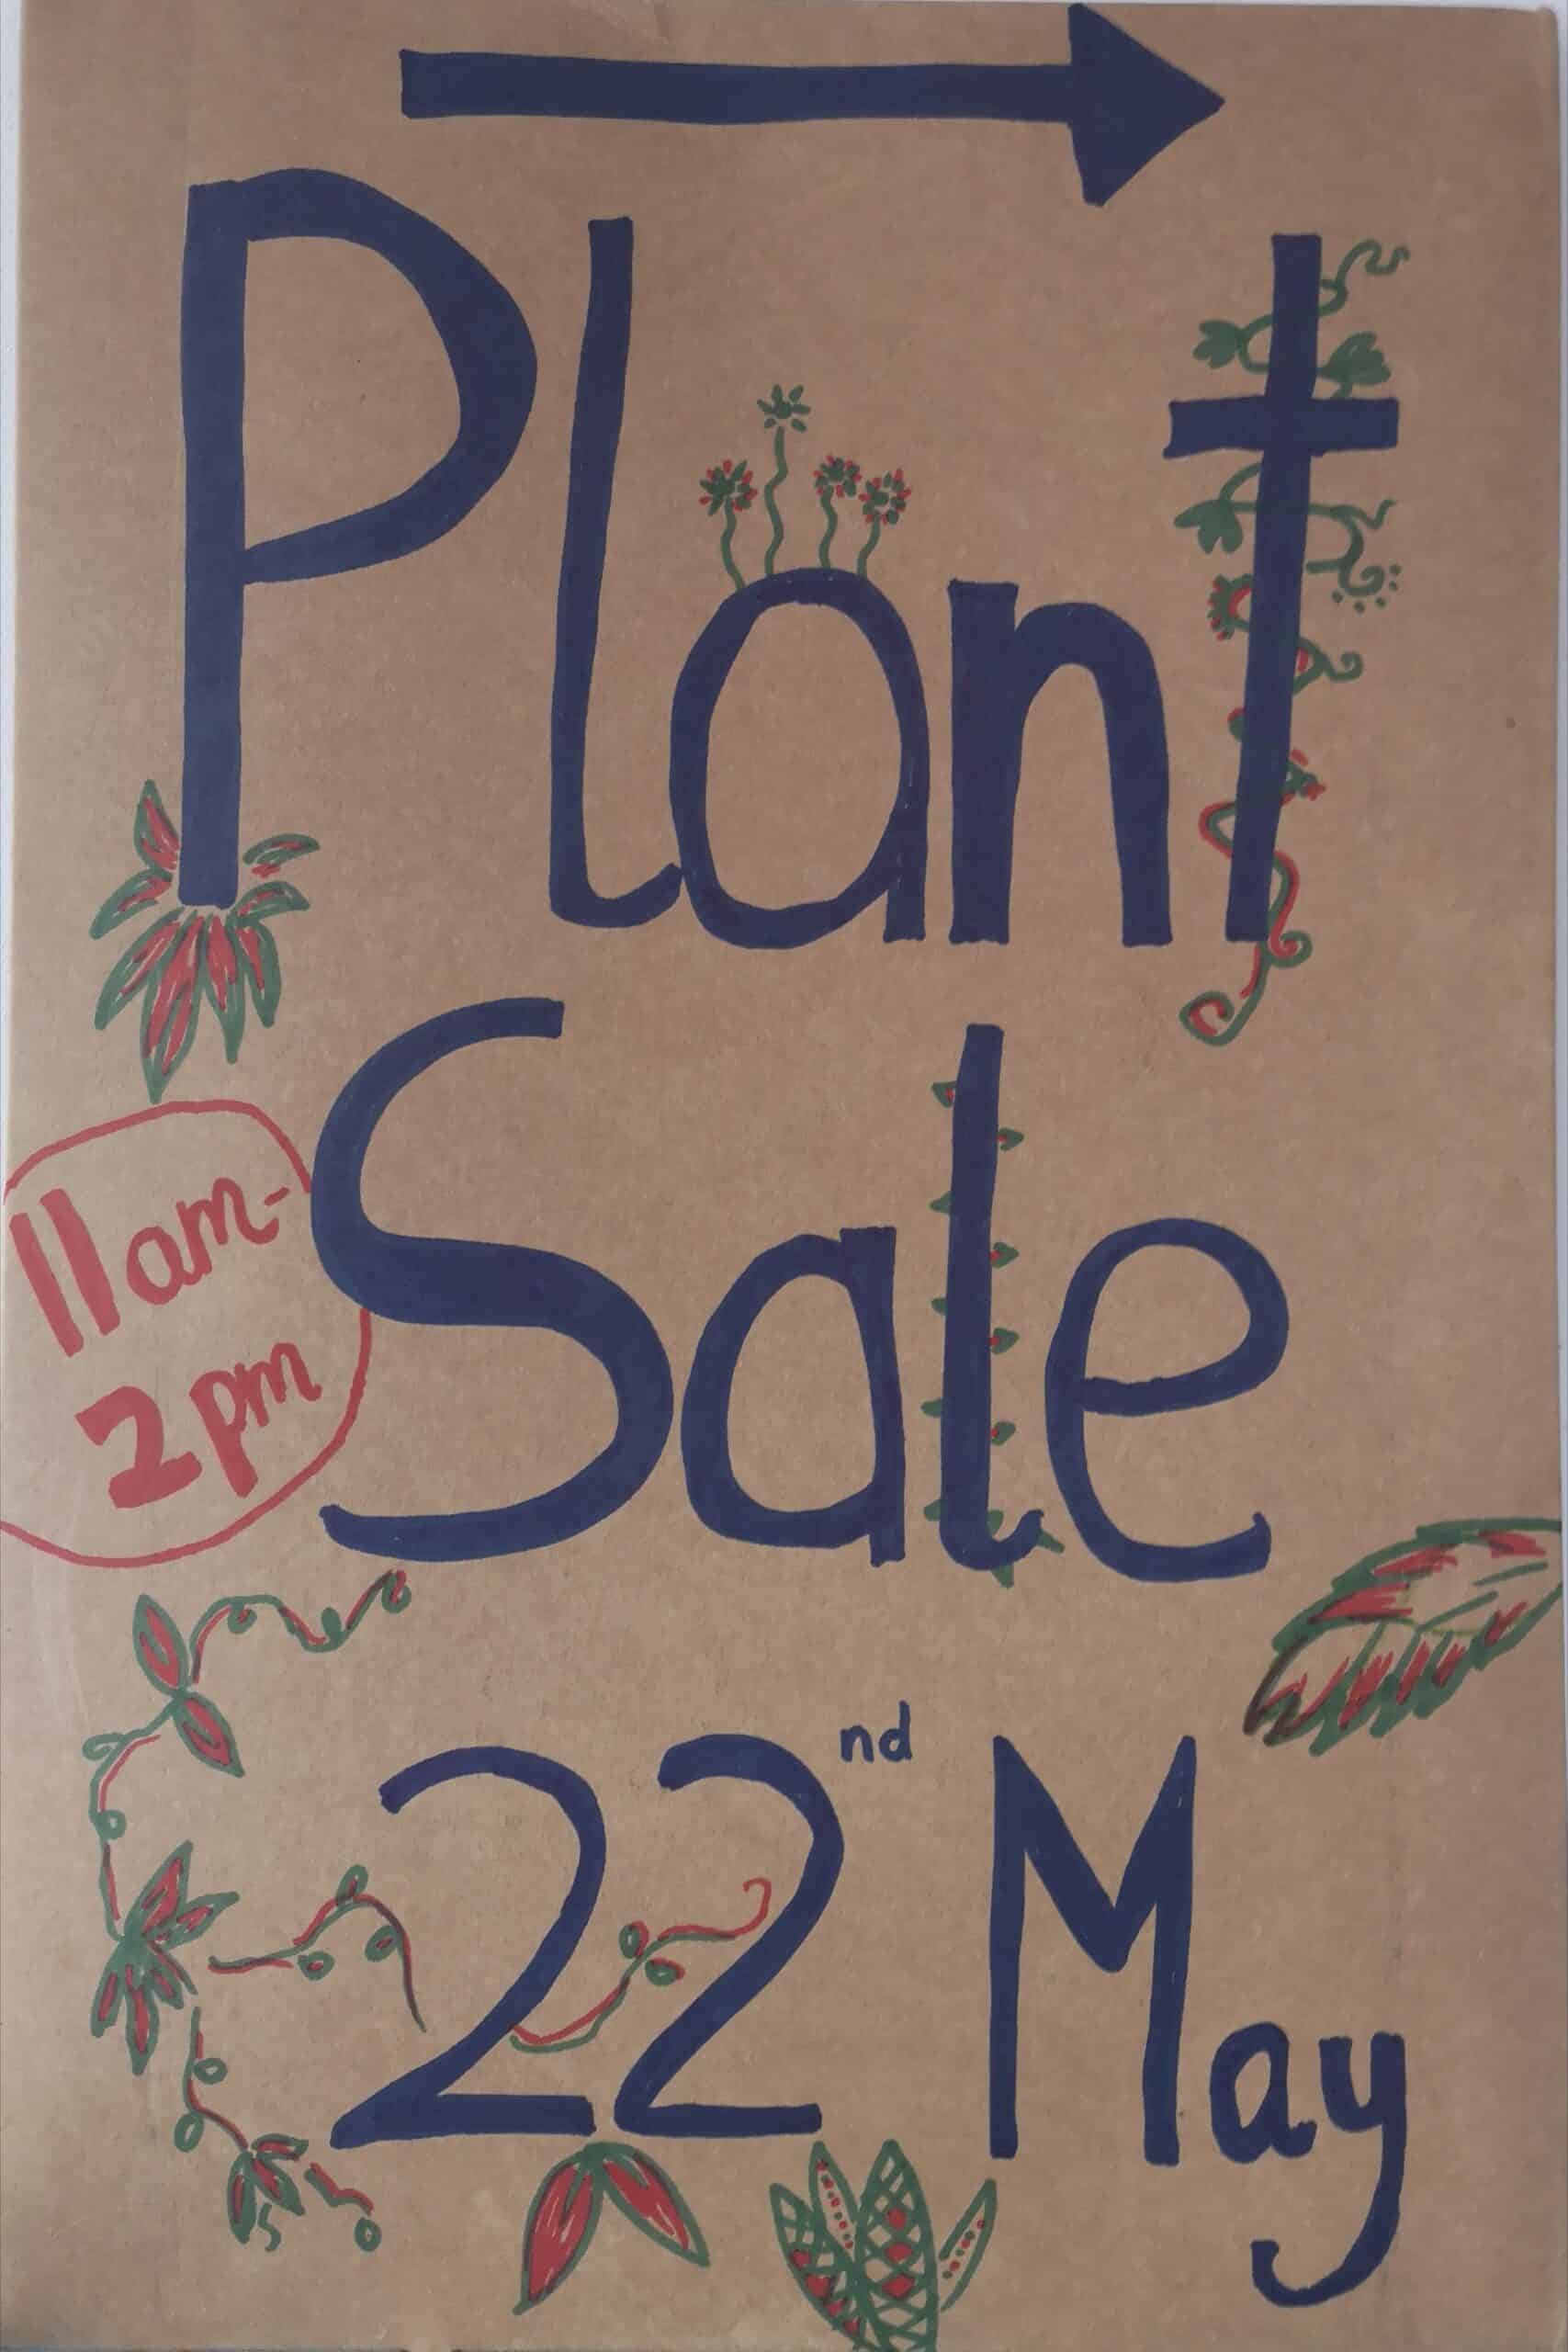 Plant
Sale
11am-
2pm
22nd May